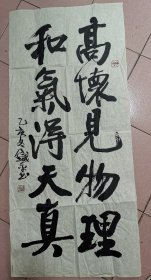 高懷見物理
和氣得天真
乙亥冬